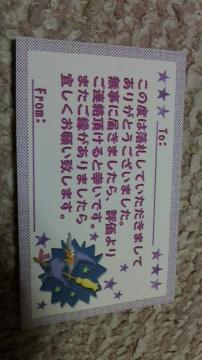 To:
この度は落札していただきまして
ありがとうございました。
無事に届きましたら、評価より
ご連絡頂けると幸いです。
またご縁がありましたら
宜しくお願い致します。
From: